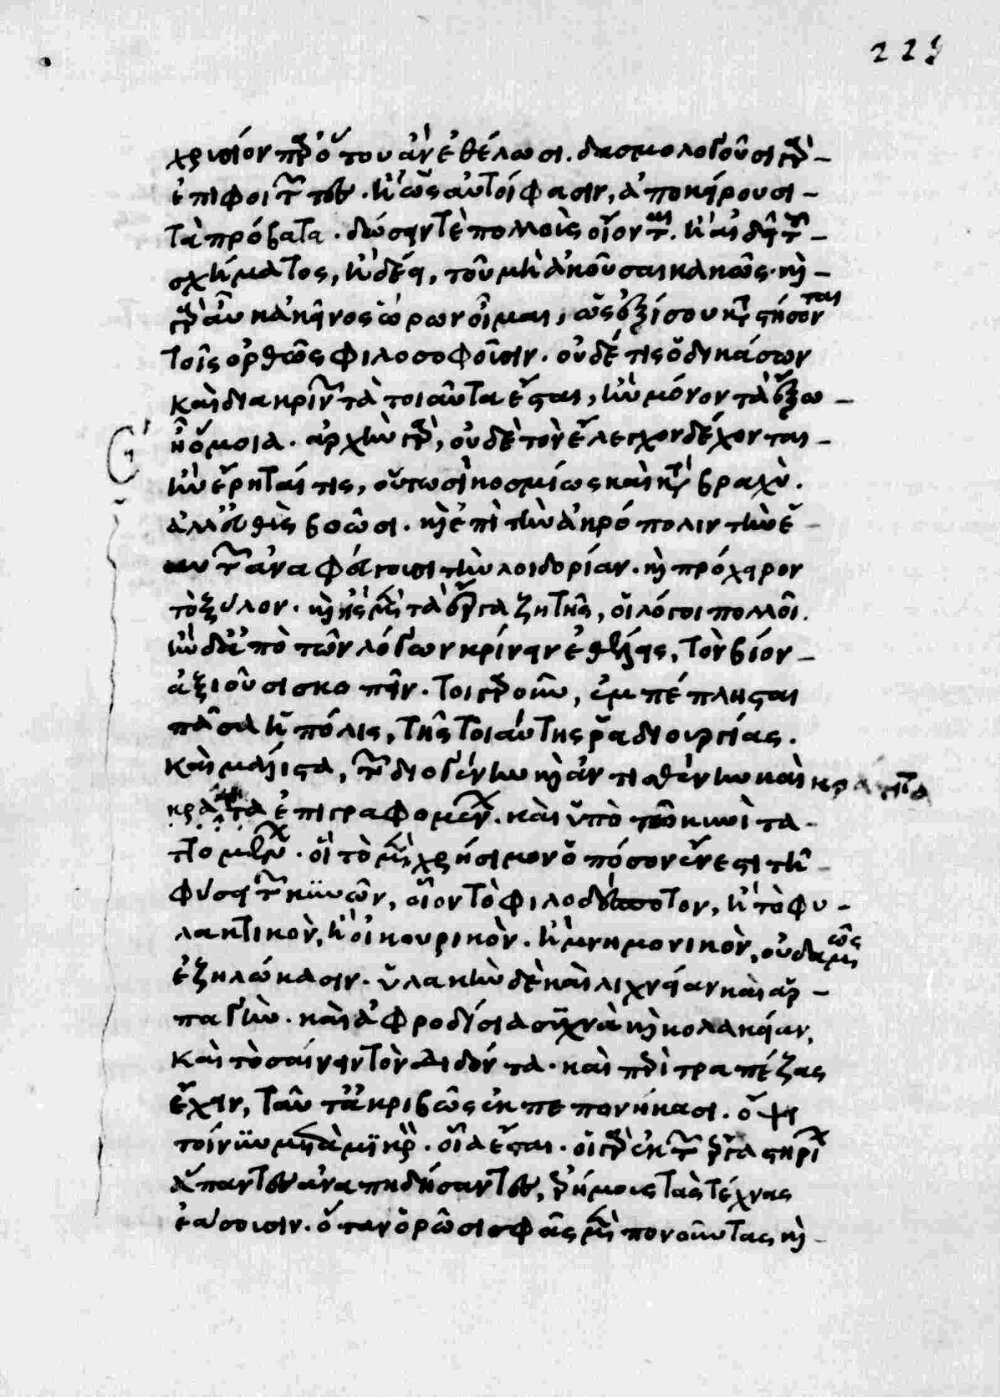 χρυσίον παρ' ὅτου ἂν ἐθέλωσι. δασμολογοῦσι γὰρ
ἐπιφοιτῶντες. ἢ ὡς αὐτοί φασιν, ἀποκείρουσι
τὰ πρόβατα. δώσειν τὲ πολλοὺς οἴονται. ἢ αἰδεῖ τοῦ
σχήματος, ἢ δέει, τοῦ μὴ ἀκοῦσαι κακῶς. καὶ
γὰρ αὖ κἀκεῖνο ἑώρων οἶμαι, ὡς ἐξίσου καταστήσονται
τοῖς ὀρθῶς φιλοσοφοῦσιν. οὐδέ τις ὁ δικάσων
καὶ διακρίνων τὰ τοιαῦτα ἔσται, ἢν μόνον τὰ ἔξω
ᾖ ὅμοια. ἀρχὴν γὰρ, οὐδὲ τὸν ἔλεγχον δέχονται
ἢν ἔρηταί τις, οὕτωσὶ κοσμίως καὶ κατὰ βραχὺ.
ἀλλ' εὐθὺς βοῶσι. καὶ ἐπὶ τὴν ἀκρόπολιν τὴν ἑ
αυτῶν ἀναφεύγουσι τὴν λοιδορίαν. καὶ πρόχειρον
τὸ ξύλον. καὶ εἰ μὲν τὰ ἔργα ζητεῖς, οἱ λόγοι πολλοί.
ἢν δὲ ἀπὸ τῶν λόγων κρίνειν ἐθέλῃς, τὸν βίον
ἀξιοῦσι σκοπεῖν. τοιγαροῦν, ἐμπέπλησται
πᾶσα ἡ πόλις, τῆς τοιαύτης ῥαδιουργίας.
καὶ μάλιστα, τῶν διογένην καὶ ἀντισθένην καὶ κράτητα
κράτητα ἐπιγραφομένων. καὶ ὑπὸ τῶ κυνὶ τα
ττομένων. οἳ τὸ μὲν χρήσιμον ὁπόσον ἔνεστι τῆ
φύσει τῶν κυνῶν, οἷον τὸ φιλοδέσποτον, ἢ τὸ φυ
λακτικὸν, ἢ οἰκουρικὸν. ἢ μνημονικὸν, οὐδαμῶς
ἐζηλώκασιν. ὑλακὴν δὲ καὶ λιχνείαν καὶ ἁρ
παγὴν. καὶ ἀφροδίσια συχνὰ καὶ κολακείαν,
καὶ τὸ σαίνειν τὸν διδόντα. καὶ περὶ τραπέζας
ἔχειν, ταῦτα ἀκριβῶς ἐκπεπονήκασι. ὄψει
τοίνυν μετὰ μικρὸν. οἷα ἔσται. οἱ γὰρ ἐκ τῶν ἐργαστηρίων
ἅπαντες ἀναπηδήσαντες, ἐρήμους τὰς τέχνας
ἐάσουσιν. ὅταν ὁρῶσι σφᾶς μὲν πονοῦντας καὶ